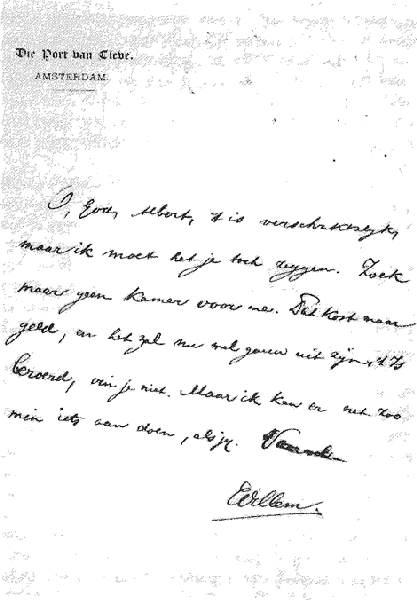 Die Port van Cleve.
AMSTERDAM.
O, God, Albert, 't is verschrikkelijk,
maar ik moet het je toch zeggen. Zoek
maar geen kamer voor me. Dat kost maar
geld, en het zal nu wel gauw uit zijn. 't Is
beroerd, vin je niet. Maar ik kan er net zoo
min iets aan doen, als jij.
Willem.